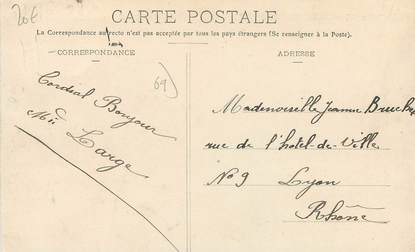 20€
CARTE POSTALE
La Correspondance au recto n'est pas acceptée par tous les pays étrangers (Se renseigner à la Poste).
CORRESPONDANCE
ADRESSE
69)
Cordial Bonjour
Large
Mademoiselle Jeanne
rue de l'hotel-de-Ville
No 9 Lyon
Rhône